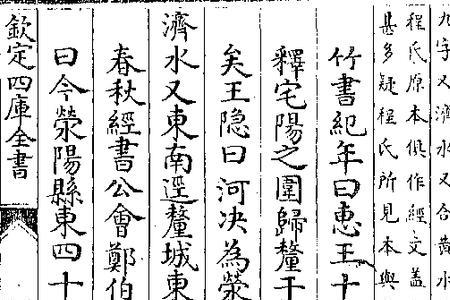 九字又濟水又合黄水
程氏原本俱作經文蓋
甚多疑程氏所見本與
竹書紀年曰恵王十
釋宅陽之圍歸釐于
矣王隐曰河决為滎
濟水又東南逕釐城東
春秋經書公會鄭伯
曰今滎陽縣東四十
欽定四庫全書